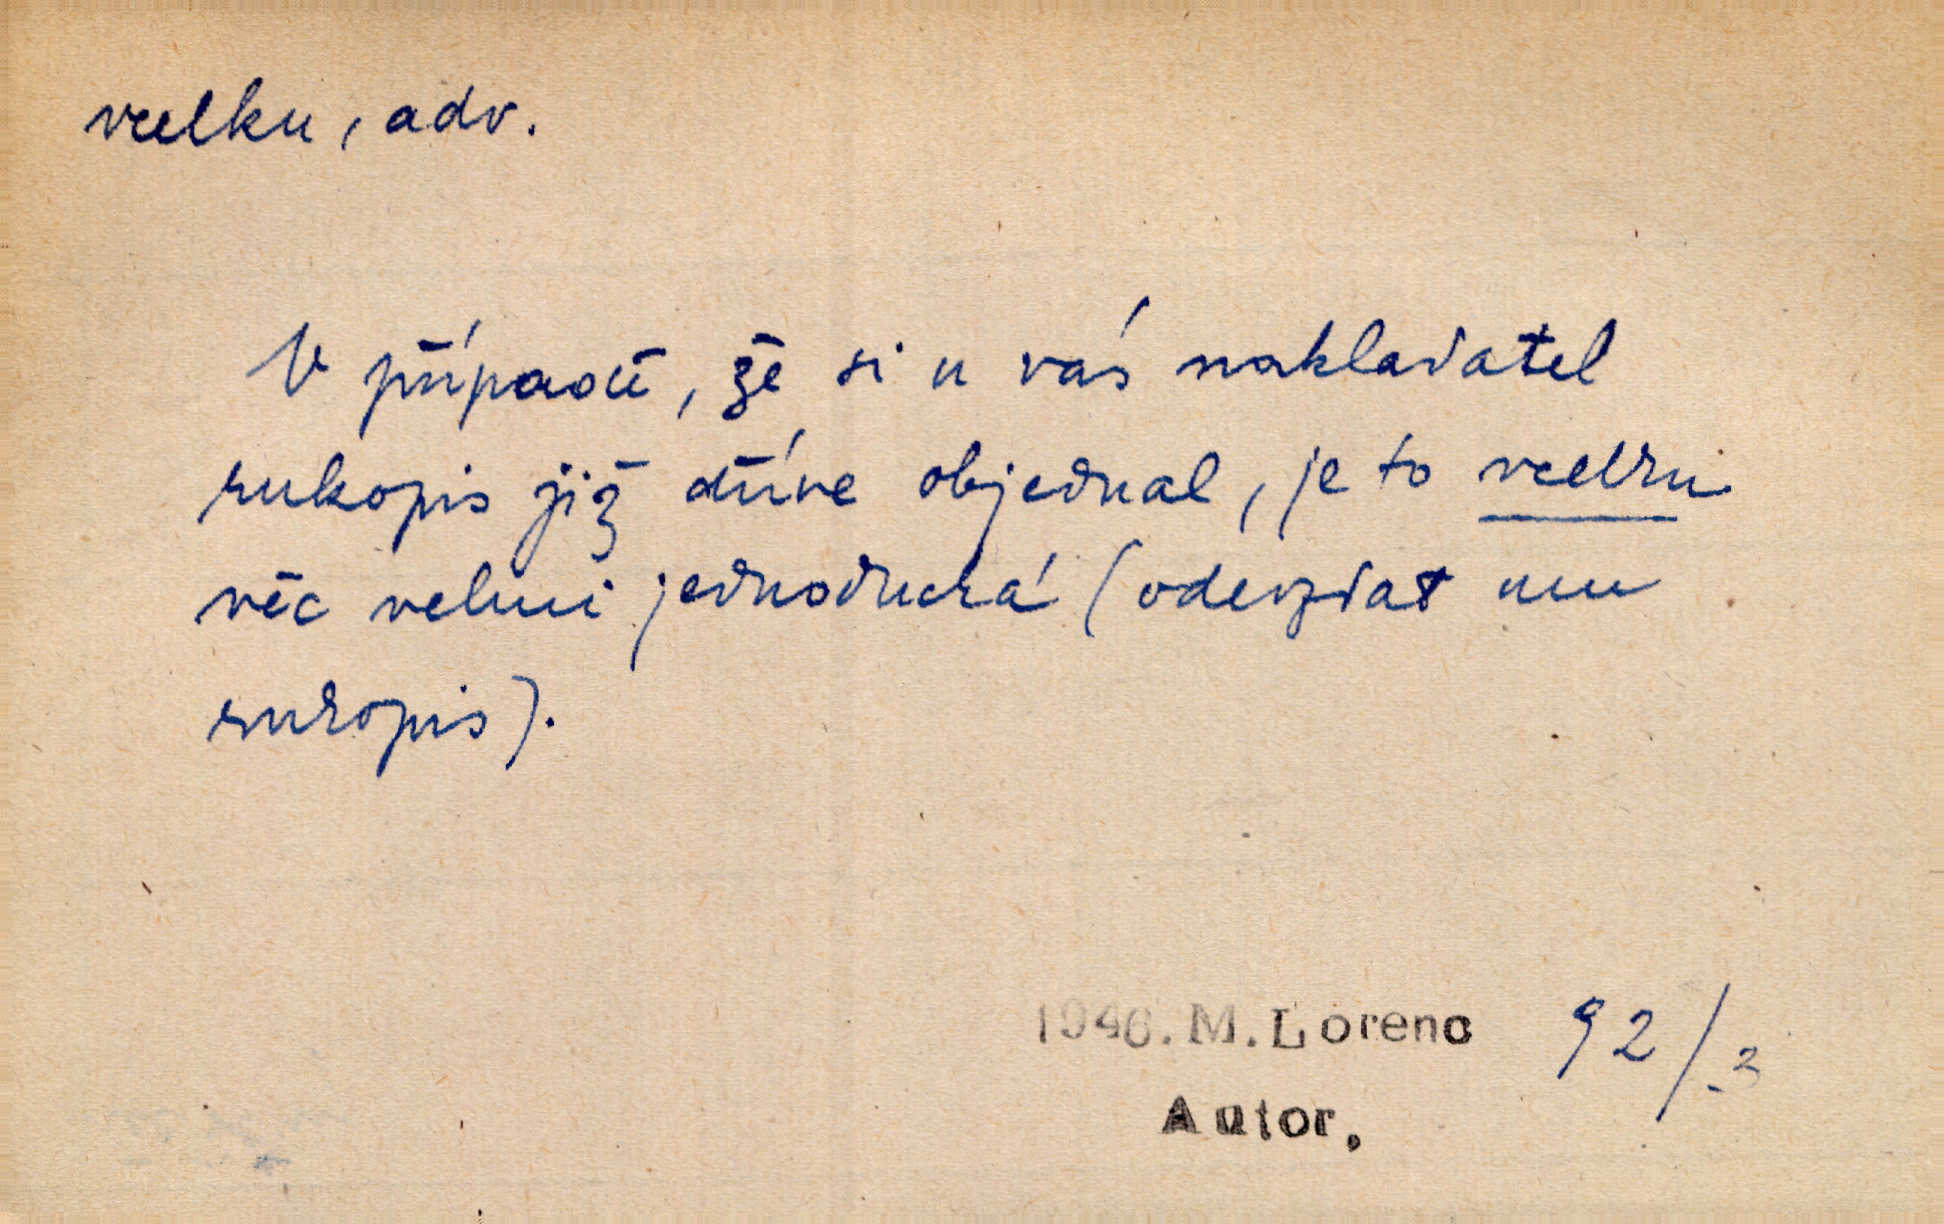 vcelku, adv.
V případě, že si u vás nakladatel
rukopis již dříve objednal, je to vcelku
věc velmi jednoduchá (odevzdat mu
rukopis).
1946. M. Lorenc 92/-3
Autor.